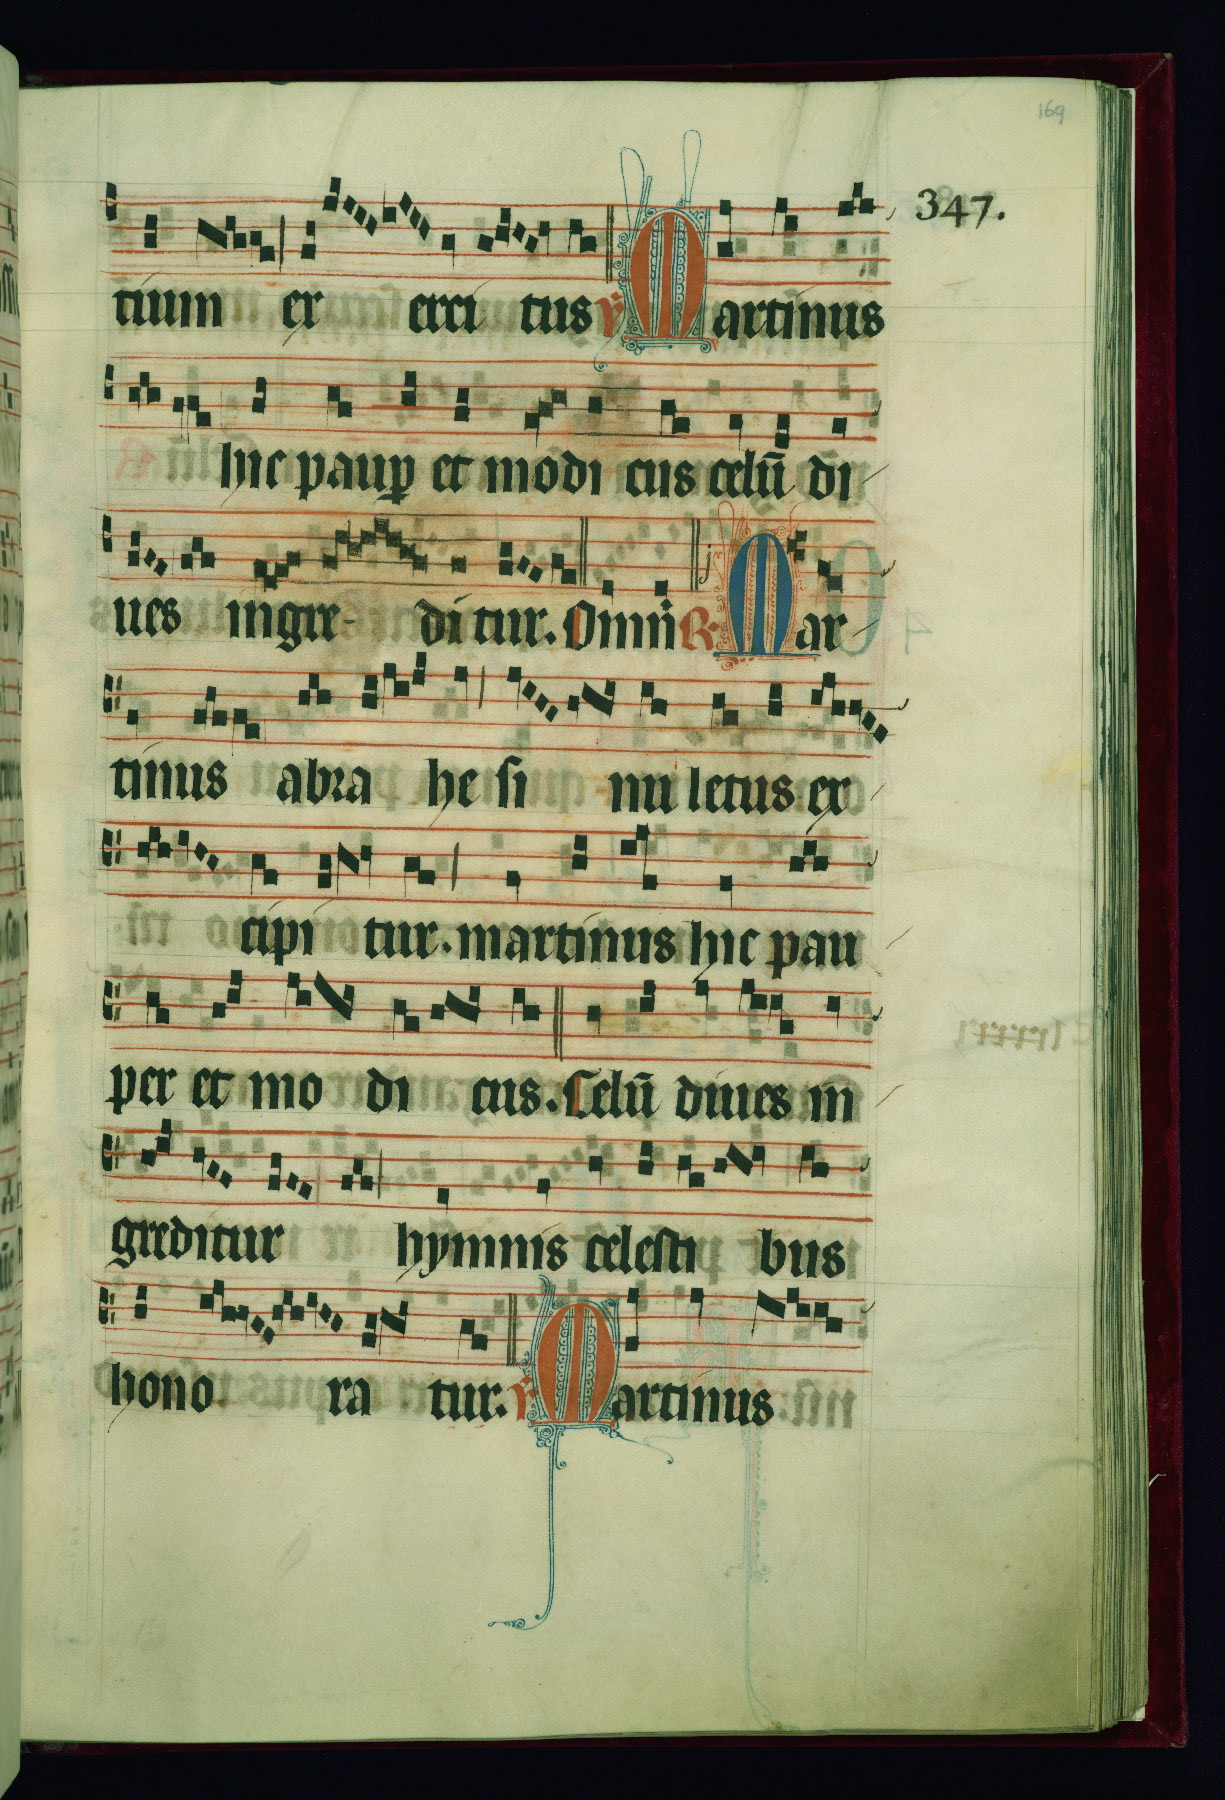 169
347.
tium ex erci tus ỹ Martinus
hic paup̱ et modi cus celū di
ues ingre- di tur. Omniū R. Mar
tinus abra he si nu letus ex
cipi tur. martinus hic pau
per et mo di cus. Celū diues in
greditur hymnis celesti bus
hono ra tur. ỹ Martinus